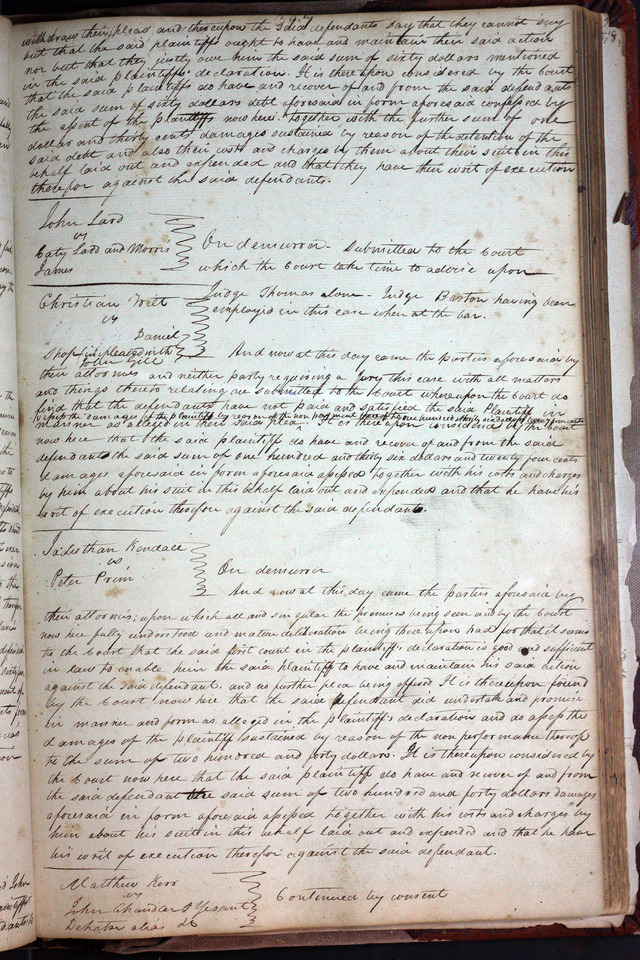 withdraw their pleas, and thereupon the said defendants say that they cannot say
but that the said plaintiffs ought to have and maintain their said action
nor but that they justly owe him the said sum of sixty dollars mentioned
in the said plaintiffs declaration. It is thereupon considered by the Court
that the said plaintiffs do have and recover of and from the said defendants
the said sum of sixty dollars debt aforesaid in form aforesaid confessed by
the assent of the plaintiffs now here. together with the further sum of one
dollar and thirty cents damages sustained by reason of the detention of the
said debt and also their costs and charges by them about their suit in this
behalf laid out and expended and that they have their writ of execution
therefor against the said defendants.
John Lard
vs
Caty Ladd and Morris
James
On demurror - Submitted to the Court
which the Court take time to advise upon
Christian Wilt
vs
Daniel
Judge Thomas alone - Judge Barton having been
employed in this case when at the bar.
impleaded with
John
And now at this day came the parties aforesaid by
their attornies and neither party requiring a Jury this case with all matters
and things thereto relating are submitted to the Court whereupon the Court do
find that the defendants have not paid and satisfied the said plaintiff in
damages of the plaintiff by reason of the non payment thereof to one hundred thirty six dollars twenty four cents
manner as alleged in their said plea. It is thereupon considered by the Court
now here that the said plaintiff do have and recover of and from the said
defendants the said sum of one hundred and thirty six dollars and twenty four cents
damages aforesaid in form aforesaid assessed together with his costs and charges
by him about his suit in this behalf laid out and expended and that he have his
writ of execution therefor against the said defendants.
Kendall
vs
Peter Prim
On demurror
And now at this day came the Parties aforesaid by
their attornies; upon which all and singular the premises being seen and by the Court
now here fully understood and mature deliberation being thereupon had for that it seems
to the Court that the said first count in the plaintiffs declaration is good and sufficient
in law to enable him the said plaintiff to have and maintain his said action
against the said defendant. and no further plea being offered It is thereupon found
by the Court now here that the said defendant did undertake and promise
in manner and form as alleged in the plaintiffs declaration and do assess the
damages of the plaintiff sustained by reason of the non performance thereof
to the sum of two hundred and forty dollars. It is thereupon considered by
the Court now here that the said plaintiff do have and recover of and from
the said defendant the said sum of two hundred and forty dollars damages
aforesaid in form aforesaid assessed together with his costs and charges by
him about his suit in this behalf laid out and expended and that he have
his writ of execution therefor against the said defendant.
Matthew Kerr
vs
John Chandler
Continued by consent